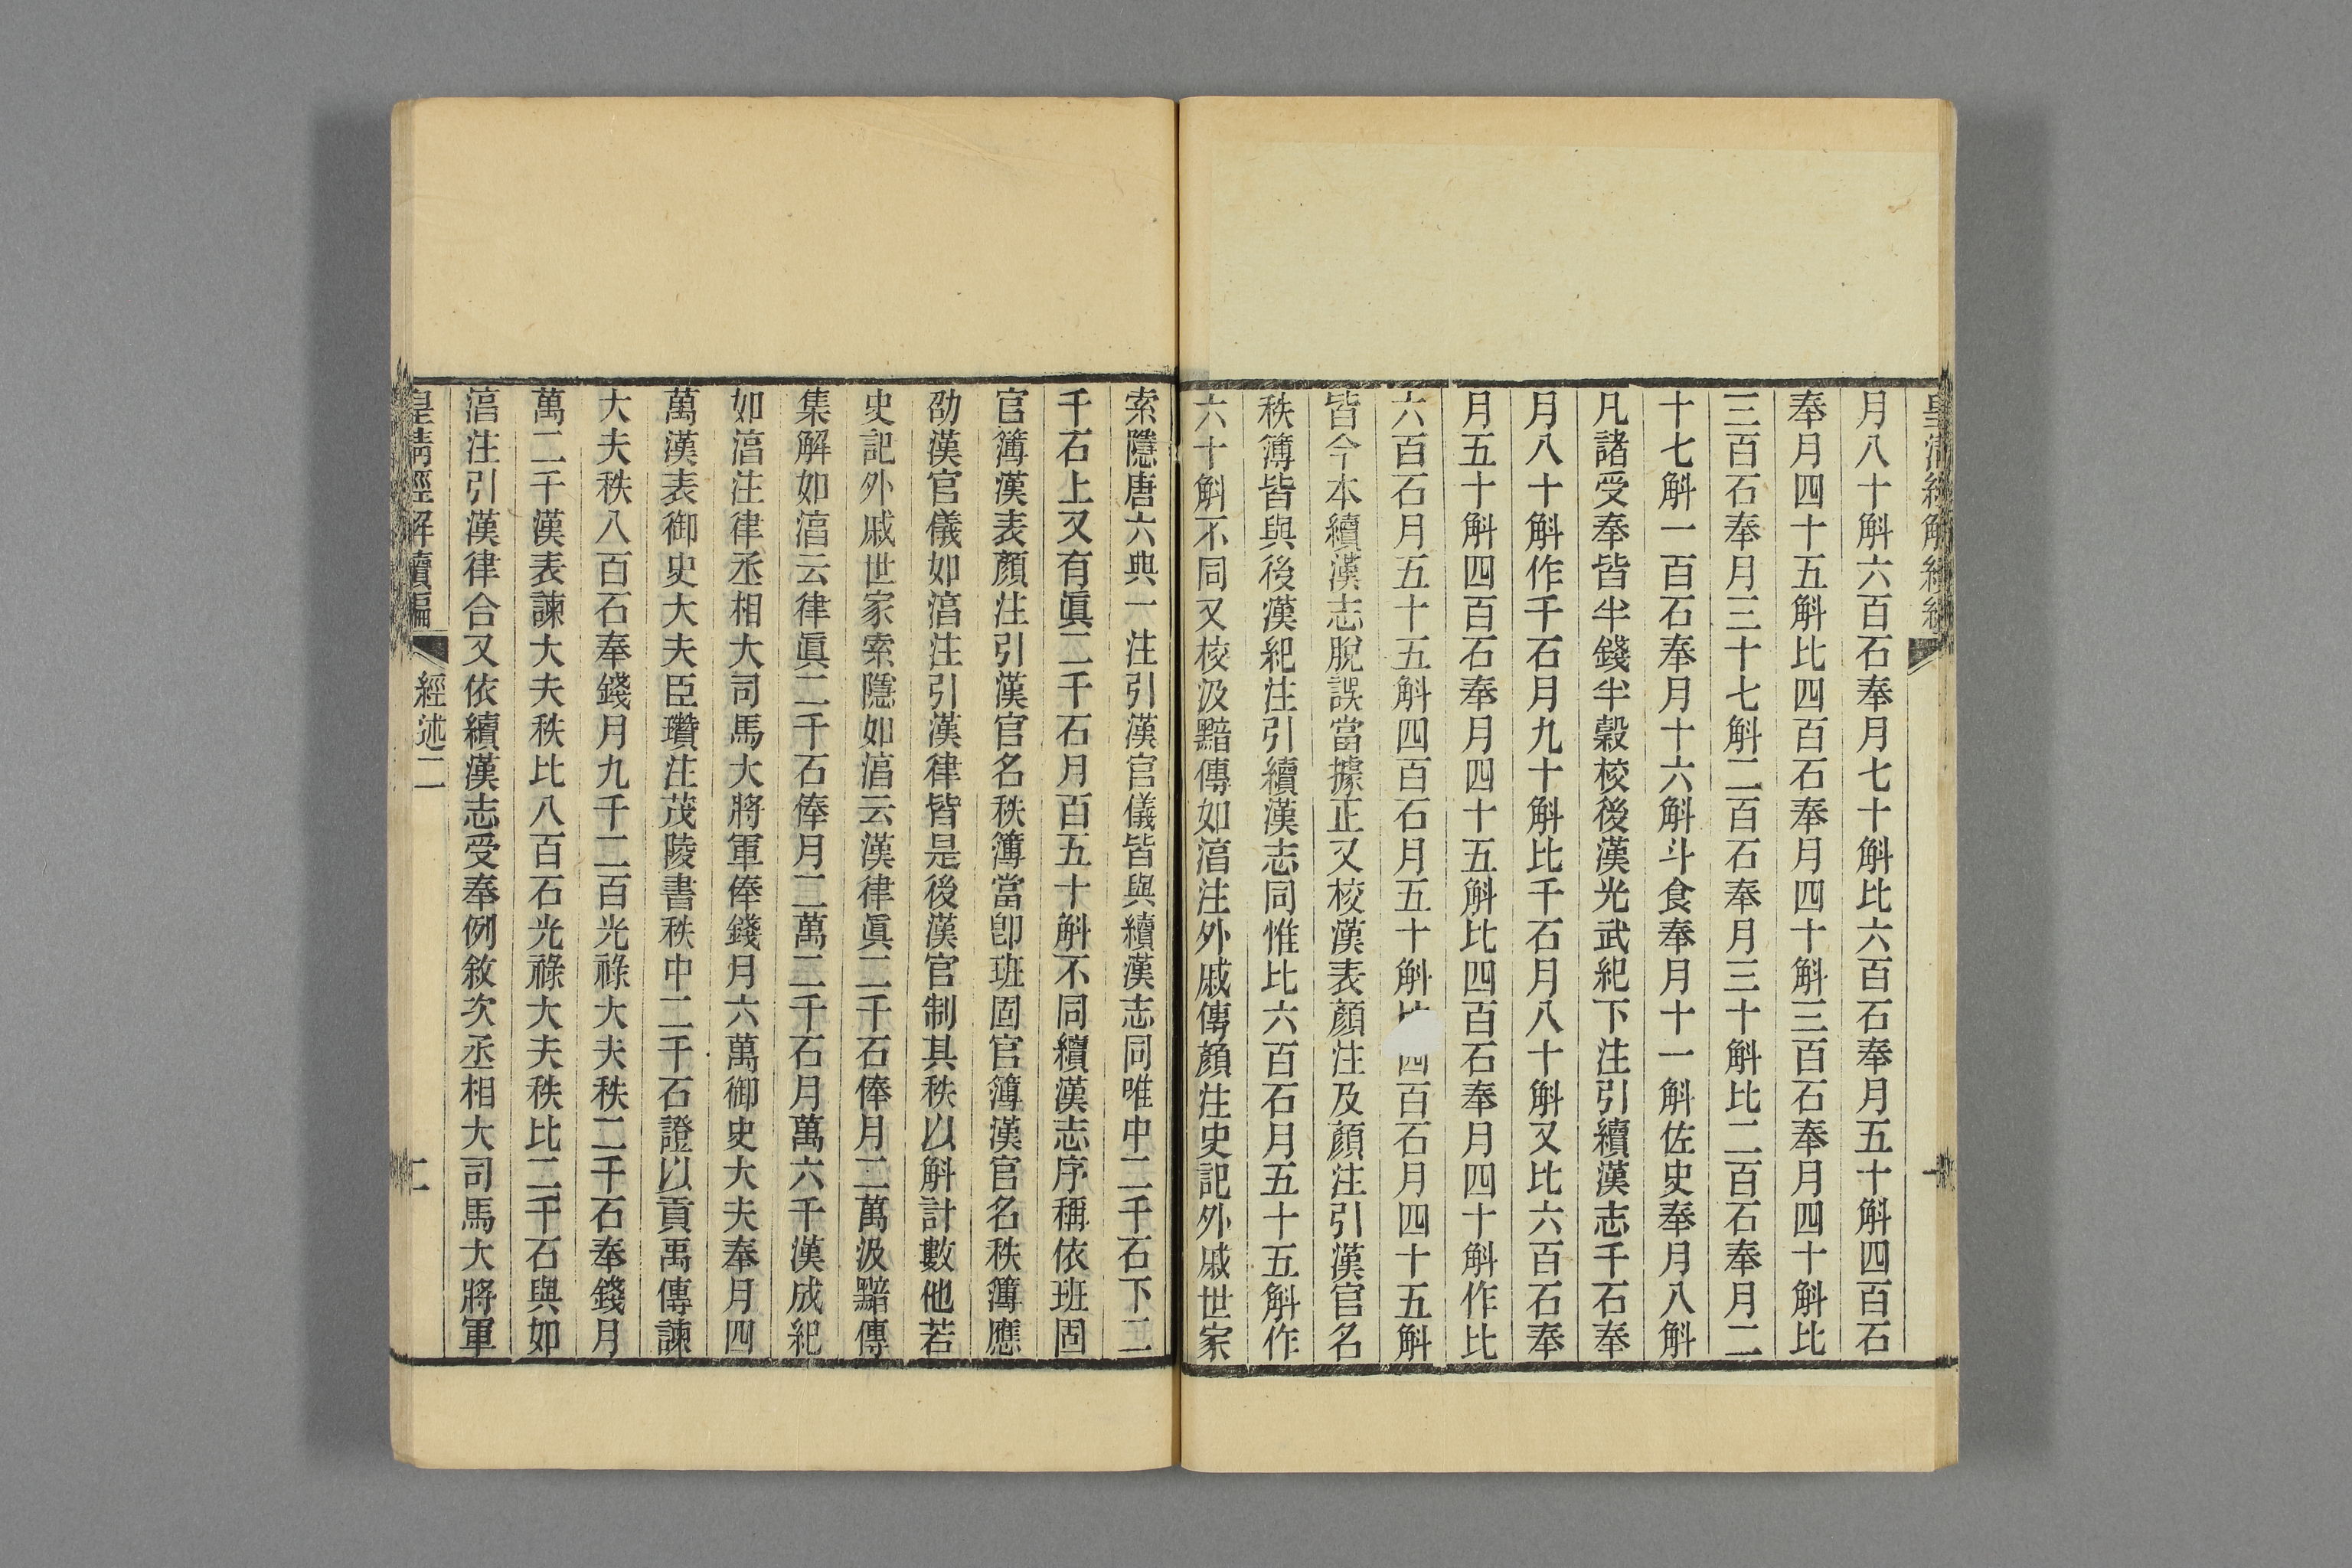 月八十斛六百石奉月七十斛比六百石奉月五十斛四百石
奉月四十五斛比四百石奉月四十斛三百石奉月四十斛比
三百石奉月三十七斛二百石奉月三十斛比二百石奉月二
十七斛一百石奉月十六斛斗食奉月十一斛佐史奉月八斛
凡諸受奉皆半錢半穀校後漢光武紀下注引續漢志千石奉
月八十斛作千石月九十斛比千石月八十斛又比六百石奉
月五十斛四百石奉月四十五斛比四百石奉月四十斛作比
六百石月五十五斛四百石月五十斛四百石月四十五斛
皆今本續漢志脫誤當據正又校漢表顏注及顏注引漢官名
秩簿皆與後漢紀注引續漢志同惟比六百石月五十五斛作
六十斛不同又校汲黯傳如淳注外戚傳顏注史記外戚世家
索隱唐六典一注引漢官儀皆與續漢志同唯中二千石下二
千石上又有眞二千石月百五十斛不同續漢志序稱依班固
官簿漢表顏注引漢官名秩簿當卽班固官簿漢官名秩簿應
劭漢官儀如淳注引漢律皆是後漢官制其秩以斛計數他若
史記外戚世家索隱如淳云漢律眞二千石俸月二萬汲黯傳
集解如淳云律眞二千石俸月二萬二千石月萬六千漢成紀
如淳注律丞相大司馬大將軍俸錢月六萬御史大夫奉月四
萬漢表御史大夫臣瓚注茂陵書秩中二千石證以貢禹傳諫
大夫秩八百石奉錢月九千二百光祿大夫秩二千石奉錢月
萬二千漢表諫大夫秩比八百石光祿大夫秩比二千石與如
淳注引漢律合又依續漢志受奉例敘次丞相大司馬大將軍
皇淸經解續編
經述二
二